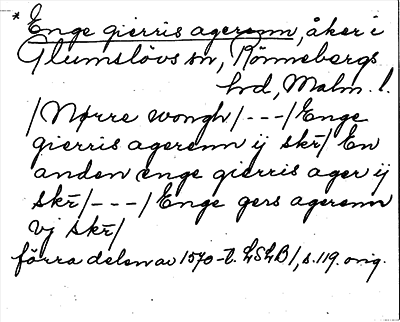 * Enge gierris agerenn, åker i
Glumslövs sn, Rönnebergs
hd, Malm. l.
/Nørre wongh/---/Enge
gierris agerenn ij skr̄/ En
anden enge gierris ager ij
skr̄/---/Enge gers agerenn
vj skr̄/
förra delen av 1570-t. LSLB1, s.119. orig.